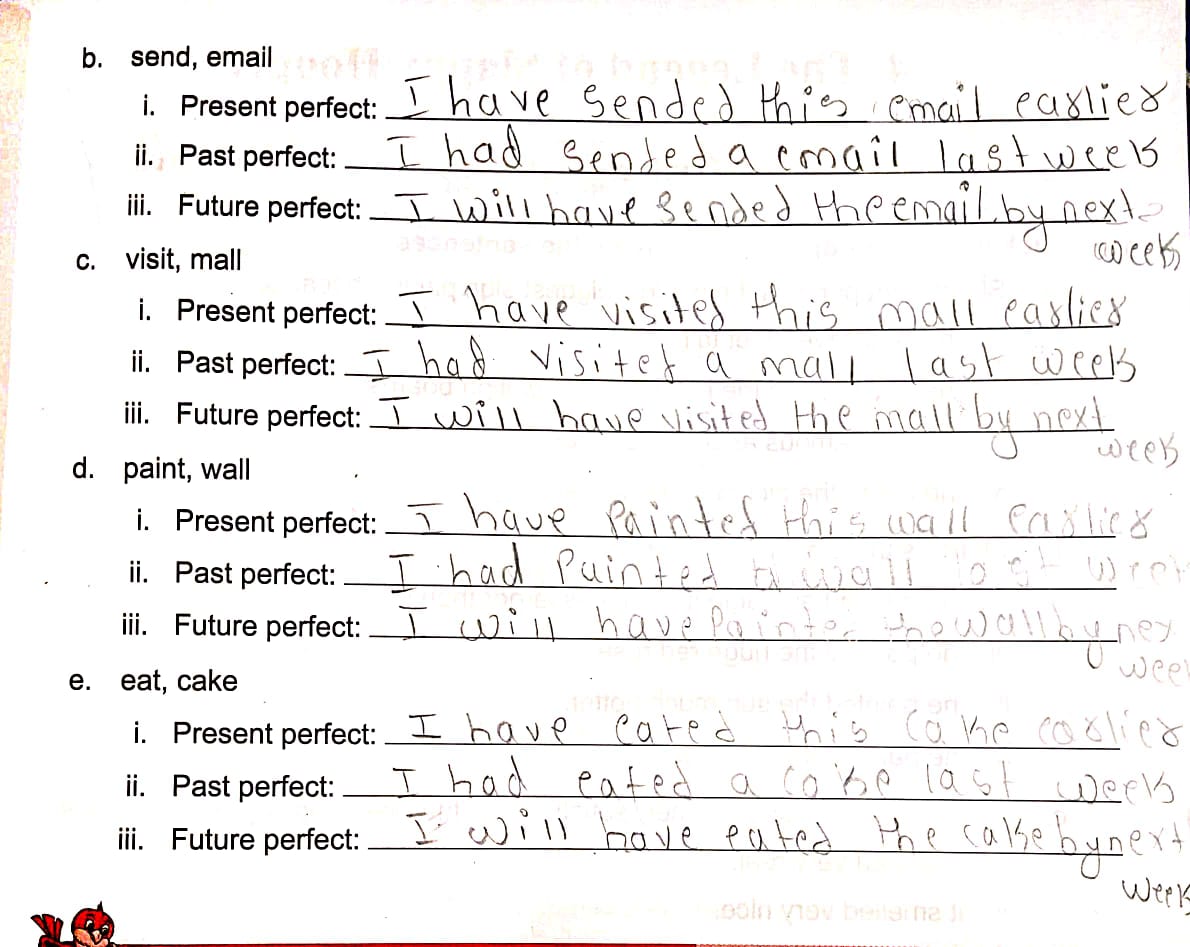 b. send, email
i. Present perfect: I have sended this email earlier
ii. Past perfect: I had sended a email last week
iii. Future perfect: I will have sended the email by next
week
c. visit, mall
i. Present perfect: I have visited this mall earlier
ii. Past perfect: I had visited a mall last week
iii. Future perfect: I will have visited the mall by next
week
d. paint, wall
i. Present perfect: I have Painted this wall earlier
ii. Past perfect: I had Painted a wall last week
iii. Future perfect: I will have Painted the wall by nex
wee
e. eat, cake
i. Present perfect: I have eated this cake earlier
ii. Past perfect: I had eated a cake last week
iii. Future perfect: I will have eated the cake by next
week